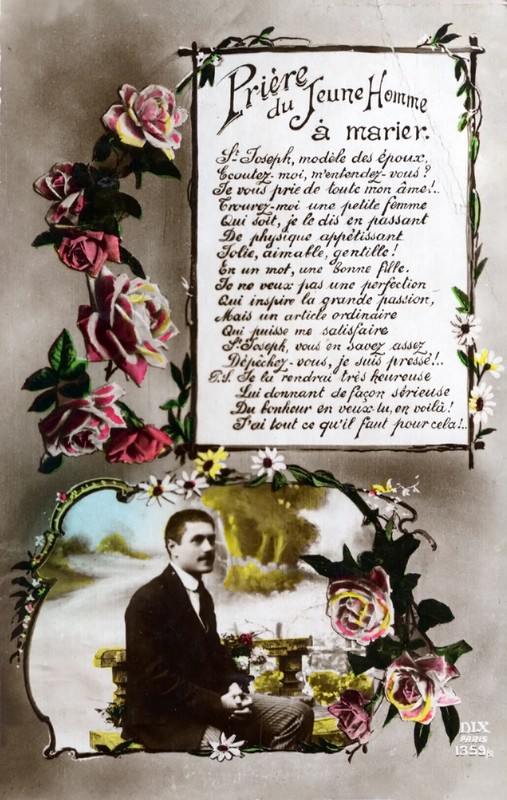 Prière
du Jeune Homme
à marier.
St Joseph, modèle des époux,
Ecoutez-moi, m'entendez-vous ?
Je vous prie de toute mon âme !..
Trouvez-moi une petite femme
Qui soit, je le dis en passant
De physique appétissant
Jolie, aimable, gentille !
En un mot, une bonne fille.
Je ne veux pas une perfection
Qui inspire la grande passion,
Mais un article ordinaire
Qui puisse me satisfaire
St Joseph, vous en savez assez
Dépêchez-vous, je suis pressé !..
P.S. Je la rendrai très heureuse
Lui donnant de façon sérieuse
Du bonheur en veux-tu, en voilà !
J'ai tout ce qu'il faut pour cela !..
DIX
PARIS
1359